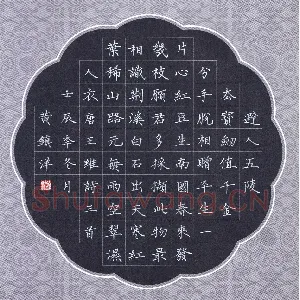 遊人五陵
去寶劍值千金
分手脫相贈平生一
片心紅豆生南國春來發
幾枝願君多采擷此物最
相識荊溪白石出天寒紅
葉稀山路元無雨空翠濕
人衣唐王維詩三首
壬辰秊冬月
黃鎮洋
Shufawang.CN